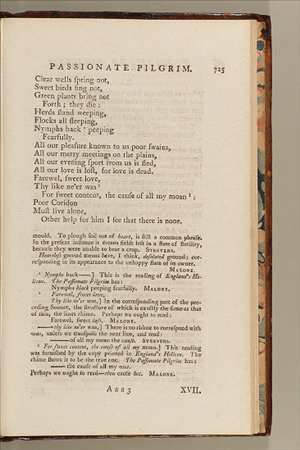 PASSIONATE PILGRIM. 725
Clear wells spring not,
Sweet birds sing not,
Green plants bring not
Forth; they die:
Herds stand weeping,
Flocks all sleeping,
Nymphs back ¹ peeping
Fearfully.
All our pleasure known to us poor swains,
All our merry meetings on the plains,
All our evening sport from us is fled,
All our love is lost, for love is dead.
Farewel, sweet love,
Thy like ne'er was ²
For sweet content, the cause of all my moan ³:
Poor Coridon
Must live alone,
Other help for him I see that there is none.
mould. To plough soil out of heart, is still a common phrase.
In the present instance it means fields left in a state of sterility,
because they were unable to bear a crop. STEEVENS.
Heartless ground means here, I think, desolated ground; cor-
responding in its appearance to the unhappy state of its owner.
MALONE.
¹ Nymphs back——] This is the reading of England's He-
licon. The Passionate Pilgrim has:
Nymphs black peeping fearfully. MALONE.
² Farewel, sweet love,
Thy like ne'er was,] In the corresponding part of the pre-
ceding Sonnet, the structure of which is exactly the same as that
of this, the lines rhime. Perhaps we ought to read:
Farewel, sweet lass. MALONE.
——thy like ne'er was,] There is no rhime to correspond with
was, unless we transpose the next line, and read:
——of all my moan the cause. STEEVENS.
³ For sweet content, the cause of all my moan.] This reading
was furnished by the copy printed in England's Helicon. The
rhime shows it to be the true one. The Passionate Pilgrim has:
—— the cause of all my woe.
Perhaps we ought to read— cause &c. MALONE.
Aaa3 XVII.